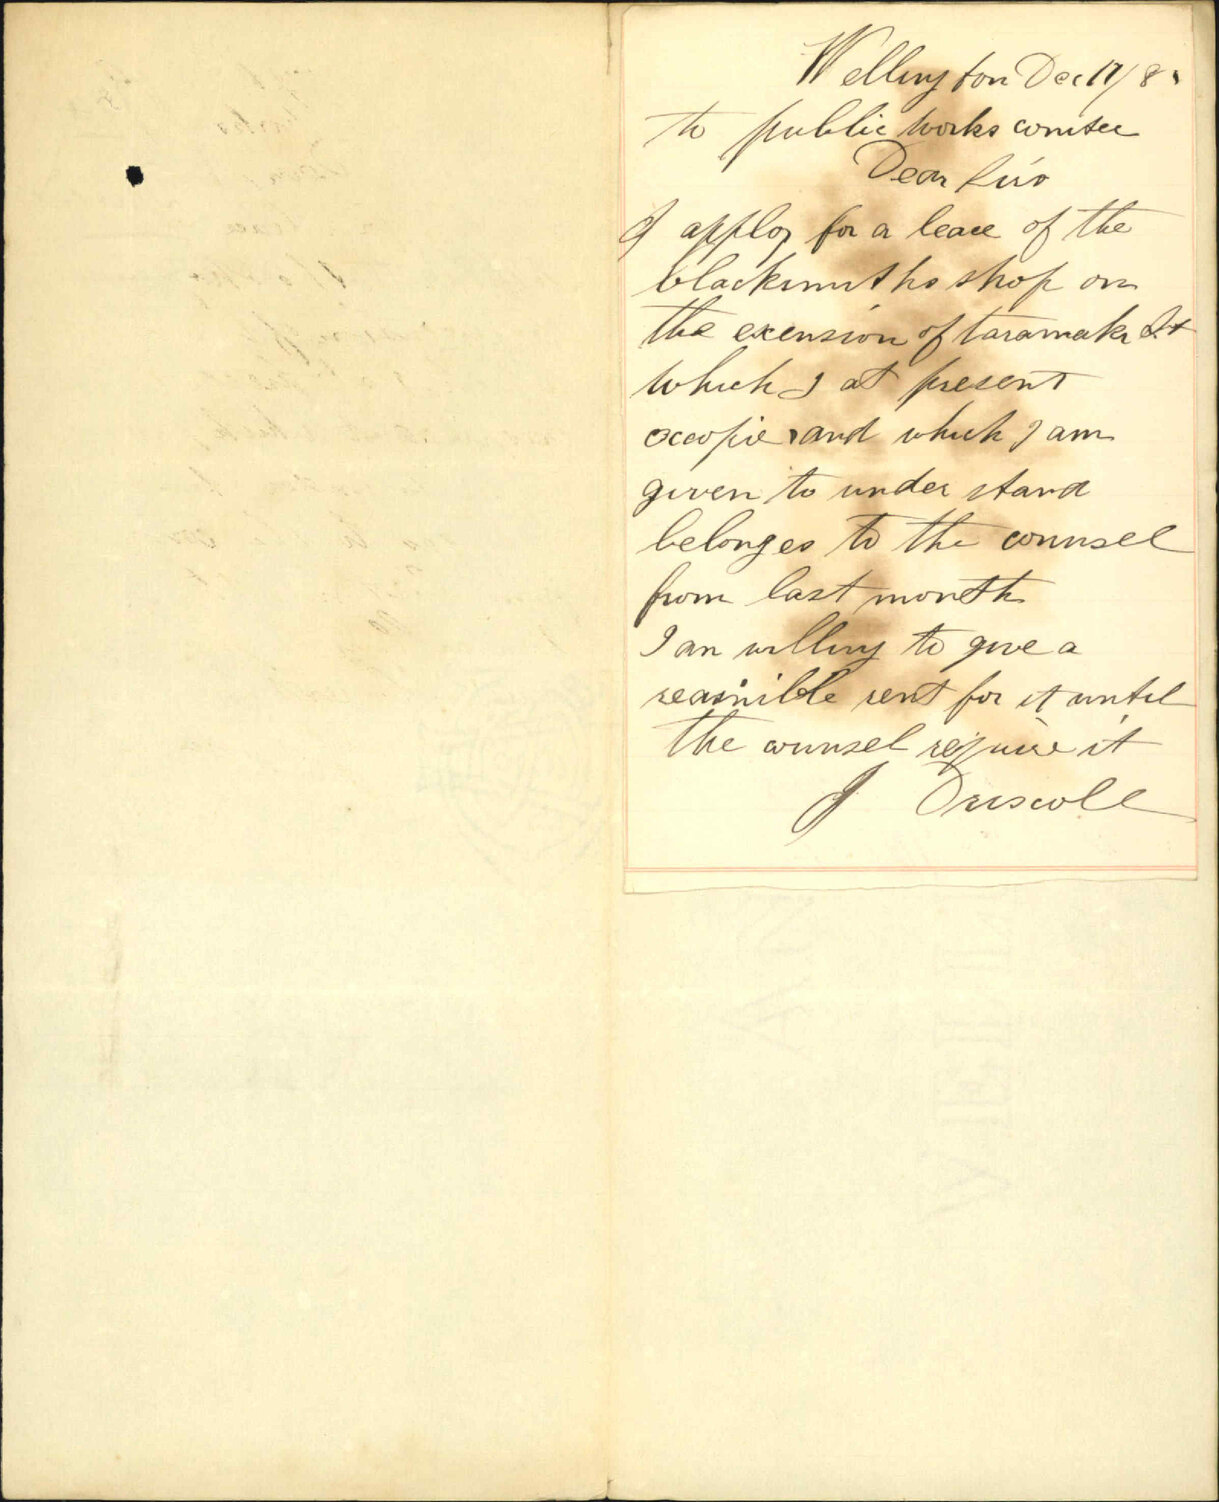 Wellington Dec 17/8
to public works comitee
Dear Sirs
I apploy for a leace of the
blacksmiths shop on
the exension of taranaki St
which I at present
occopie and which I am
given to under stand
belonges to the counsel
from last month
I an willing to give a
reasinible rent for it until
the counsel require it
J Driscoll